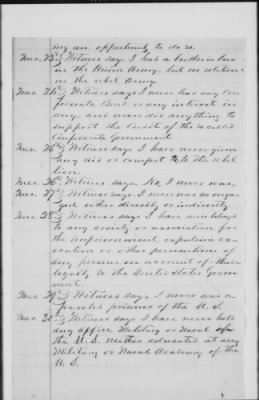 my an opportunity to do so.
Ans. 23d } Witness says I had a brother in law
in the Union Army, but no relation
in the rebel Army.
Ans. 24th } Witness says I never had any Con
federate bond or any interest in
any, and never did anything to
support the credit of the so called
Confederate Government
Ans. 25th } Witness says I have never given
any aid or comfort to the rebel
lion.
Ans. 26th } Witness says. No, I never was,
Ans. 27th } Witness says I never was so enga
ged either directly or indirectly.
Ans. 28th } Witness says I have never belonged
to any society or association for
the imprisonment, expulsion ex
ecution or other persecution of
any person on account of their
loyalty to the United States Govern
ment.
Ans. 29th } Witness says I never was a
Paroled prisoner of the U. S.
Ans. 30th } Witness says I have never held
any office Military or Naval of
the U. S. neither educated at any
Military or Naval Academy of the
U. S.